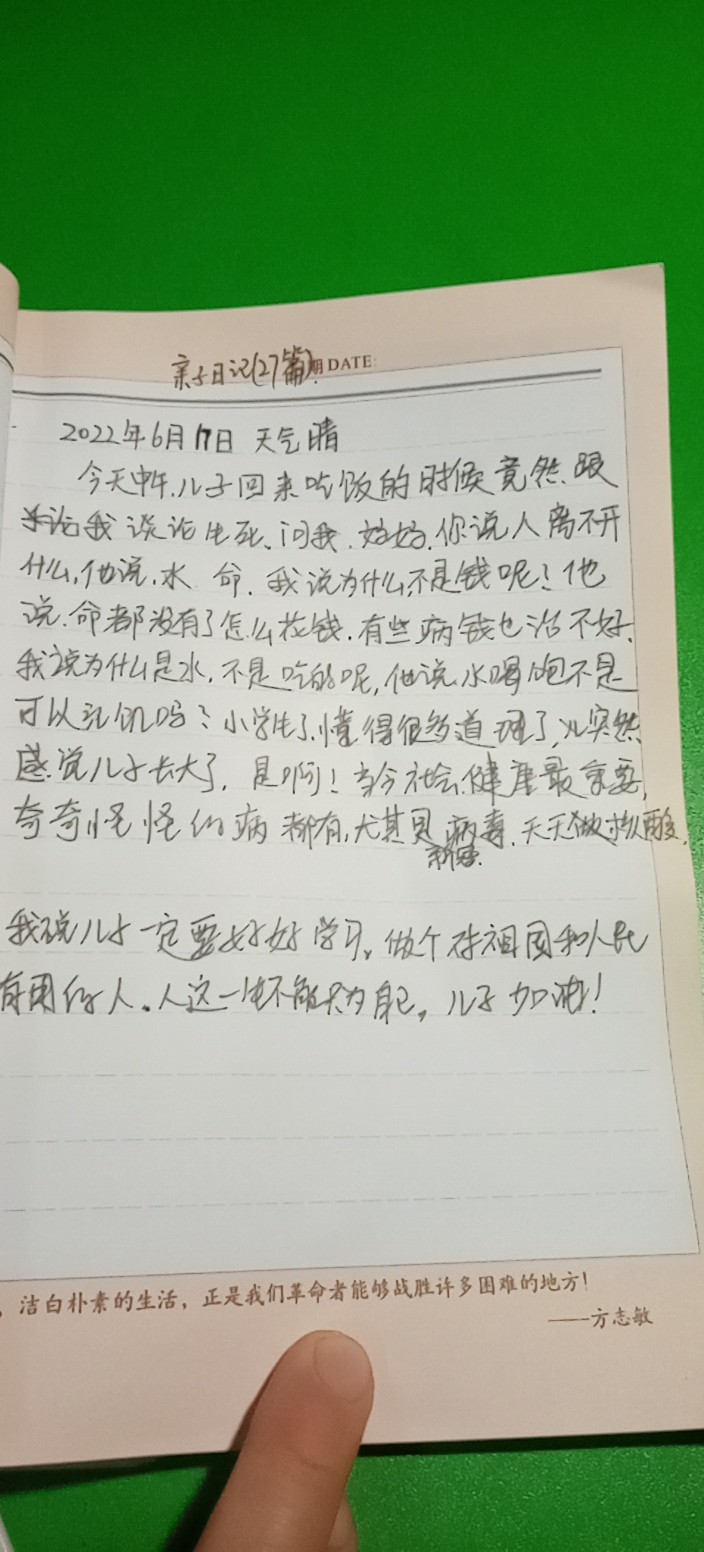 亲子日记(27篇)期DATE:
2022年6月17日 天气晴
今天中午,儿子回来吃饭的时候竟然跟
我谈论生死、问我.妈妈.你说人离不开
什么,他说.水 命.我说为什么不是钱呢?他
说.命都没有了怎么花钱.有些病钱也治不好.
我说为什么是水,不是吃的呢,他说水喝饱不是
可以充饥吗?小学生了,懂得很多道理了,突然
感觉儿子长大了,是啊!当今社会,健康最重要,
奇奇怪怪的病都有,尤其是病毒.天天做核酸.
新冠
我说儿子一定要好好学习。做个对祖国和人民
有用的人。人这一生不能只为自己,儿子加油!
,洁白朴素的生活,正是我们革命者能够战胜许多困难的地方!
——方志敏